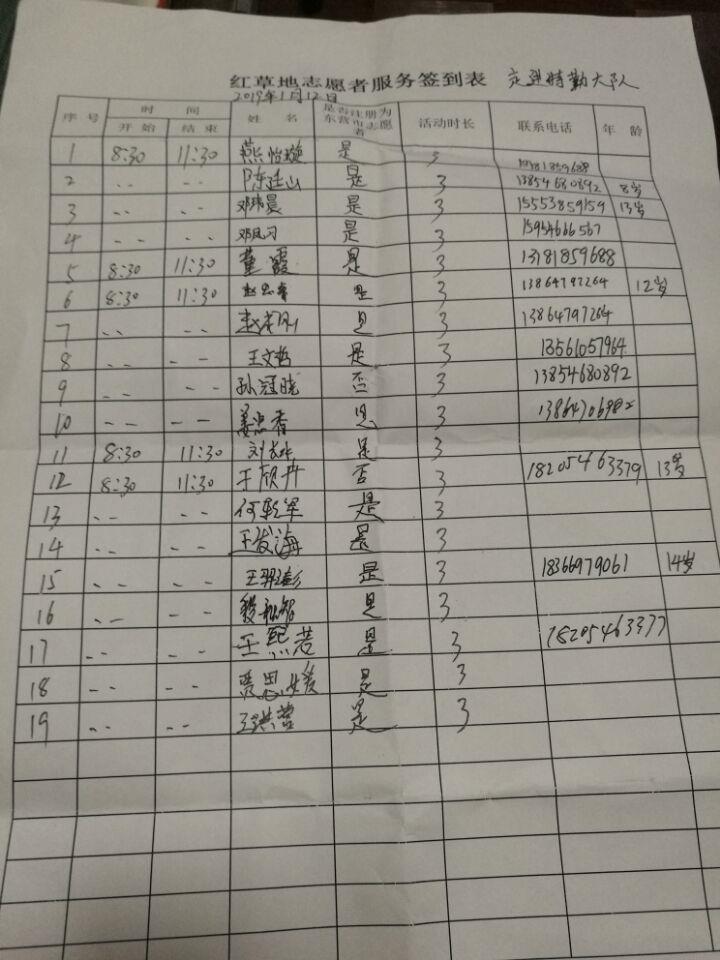 红草地志愿者服务签到表 走进特勤大队
2019年1月12日
序号 时间 姓名 是否注册为东营市志愿者 活动时长 联系电话 年龄
开始 结束
1 8:30 11:30 燕怡璇 是 3 13181859688
2 -- -- 陈廷山 是 3 13854680892 8岁
3 -- -- 邓玮晨 是 3 15553859159 13岁
4 -- -- 邓凤习 是 3
5 8:30 11:30 董霞 是 3 13181859688
6 8:30 11:30 是 3 13864797264 12岁
7 -- -- 是 3 13864797264
8 -- -- 王文哲 是 3 13561057964
9 -- -- 孙冠晓 否 3 13854680892
10 -- -- 姜忠香 是 3
11 8:30 11:30 刘 是 3
12 8:30 11:30 于欣丹 否 3 18205463379 13岁
13 -- -- 何乾军 是 3
14 -- -- 王发海 是 3
15 -- -- 王羿澎 是 3 18366979061 14岁
16 -- -- 是 3
17 -- -- 王熙若 是 3 18205463377
18 -- -- 贾思媛 是 3
19 -- -- 王洪蓉 是 3